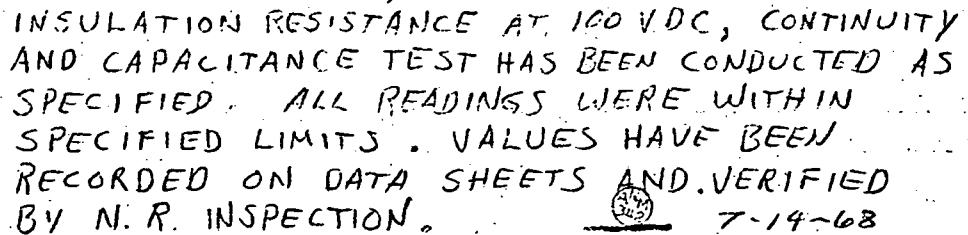 INSULATION RESISTANCE AT 100 VDC, CONTINUITY
AND CAPACITANCE TEST HAS BEEN CONDUCTED AS
SPECIFIED. ALL READINGS WERE WITHIN
SPECIFIED LIMITS. VALUES HAVE BEEN
RECORDED ON DATA SHEETS AND VERIFIED
BY N. R. INSPECTION. 7-14-68